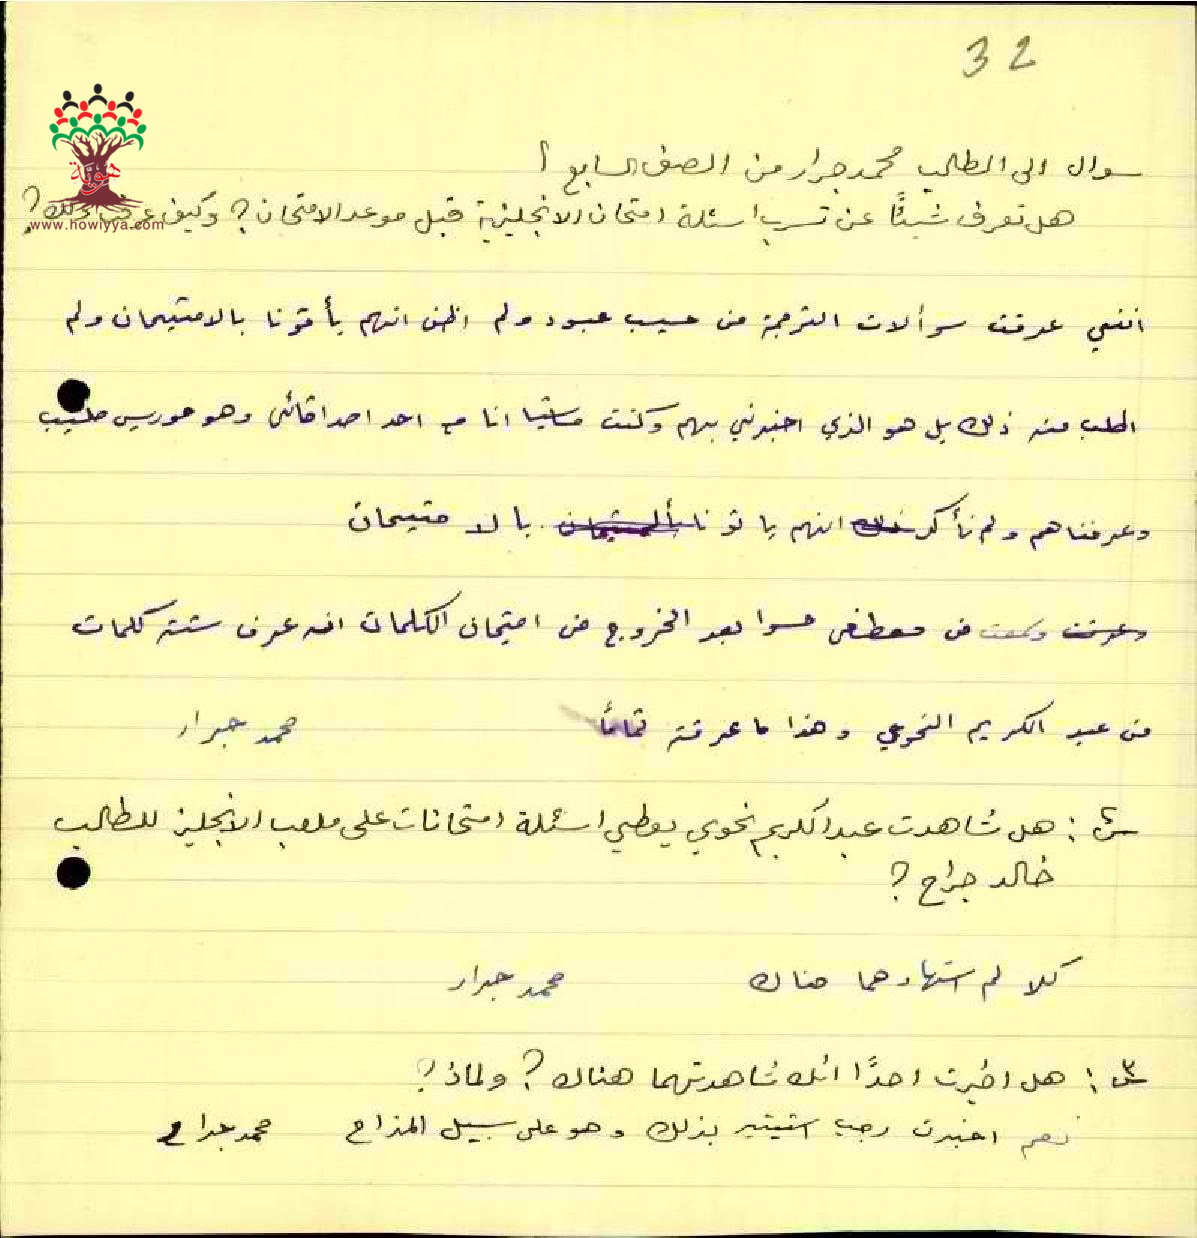 32
هوية
www.howiyya.com
سوال الى الطالب محمد جرار من الصف السابع أ
هل تعرف شيئًا عن تسرب اسئلة امتحان الانجليزية قبل موعد الامتحان؟ وكيف عرفت ذلك؟
انني عرفت سوألات الترجمة من حسيب عبود ولم اظن انهم يأتونا بالامتيحان ولم
اطلب منه ذلك بل هو الذي اخبرني بهم وكنت ماشيا انا مع احد اصداقائي وهو موريس
وعرفناهم ولم نأكد انهم ياتونا بالا متيحان
وعرفت وسمعت من مصطفى بعد الخروج من امتيحان الكلمات انه عرف ستة كلمات
من عبد الكريم النحوي وهذا ما عرفته تمامًا محمد جرار
س٢: هل شاهدت عبد الكريم نحوي يعطي اسئلة امتحانات على ملعب الانجليز للطالب
خالد جراح؟
كلا لم اشهادهما هناك محمد جرار
س٣: هل اخبرت احدًا انك شاهدتهما هناك؟ ولماذ؟
نعم اخبرت رجب بذلك وهو على سبيل المزاح محمد جرار